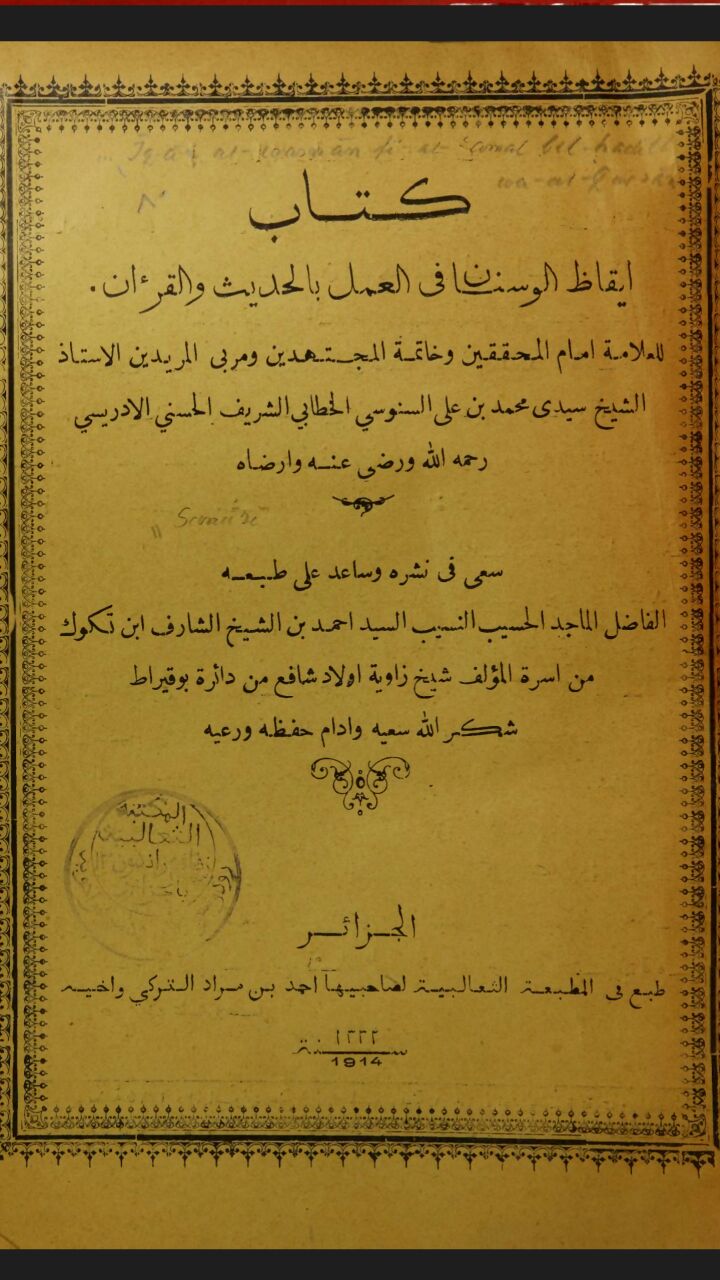 Iqaz al-wasnan fi al-'amal bil-hadith
wa-al-Qur'an
كتاب
ايقاظ الوسنان فى العمل بالحديث والقرءان.
للعلامة امام المحققين وخاتمة المجتهدين ومربى المريدين الاستاذ
الشيخ سيدى محمد بن على السنوسي الخطابي الشريف الحسني الادريسي
رحمه الله ورضي عنه وارضاه
سعى فى نشره وساعد على طبعه
الفاضل الماجد الحسيب النسيب السيد احمد بن الشيخ الشارف ابن تكوك
من اسرة المؤلف شيخ زاوية اولاد شافع من دائرة بوقيراط
شكر الله سعيه وادام حفظه ورعيه
المكتبة
الثعالبية
الجزائر
طبع فى المطبعة الثعالبية لصاحبيها احمد بن مراد التركي واخيه
سنة ١٣٣٢
1914